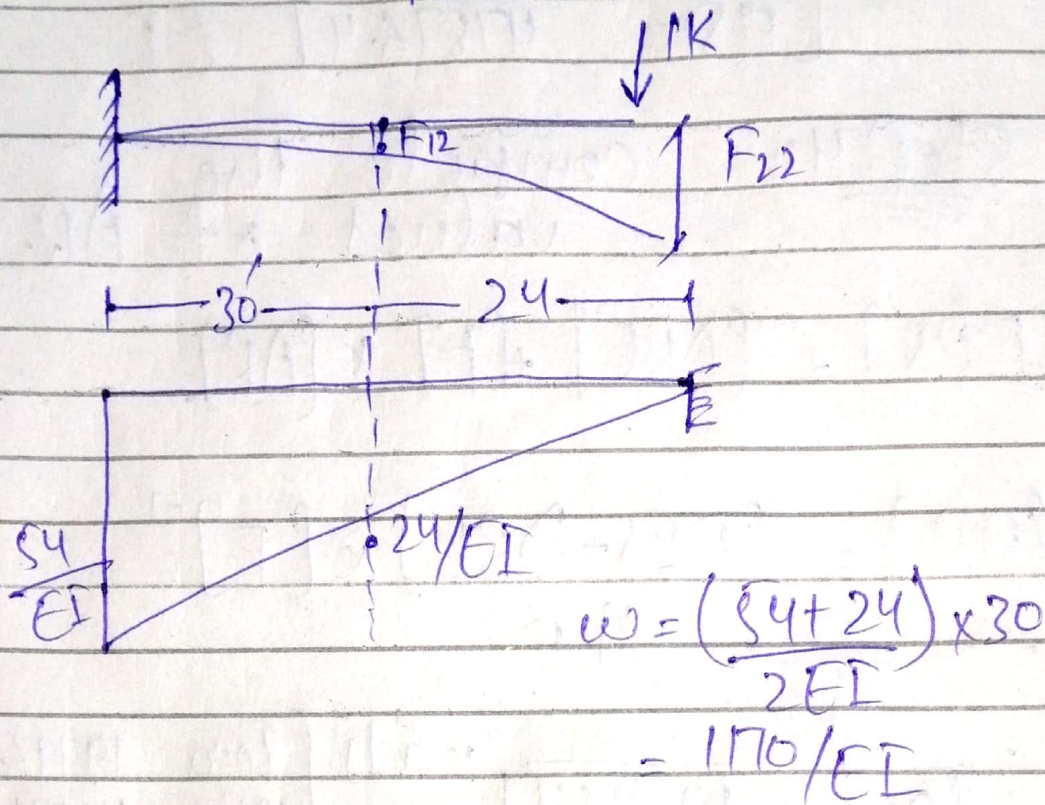 1K
F12
F22
30'
24
54/EI
24/EI
w = (54+24/2EI) x 30
= 1170/EI